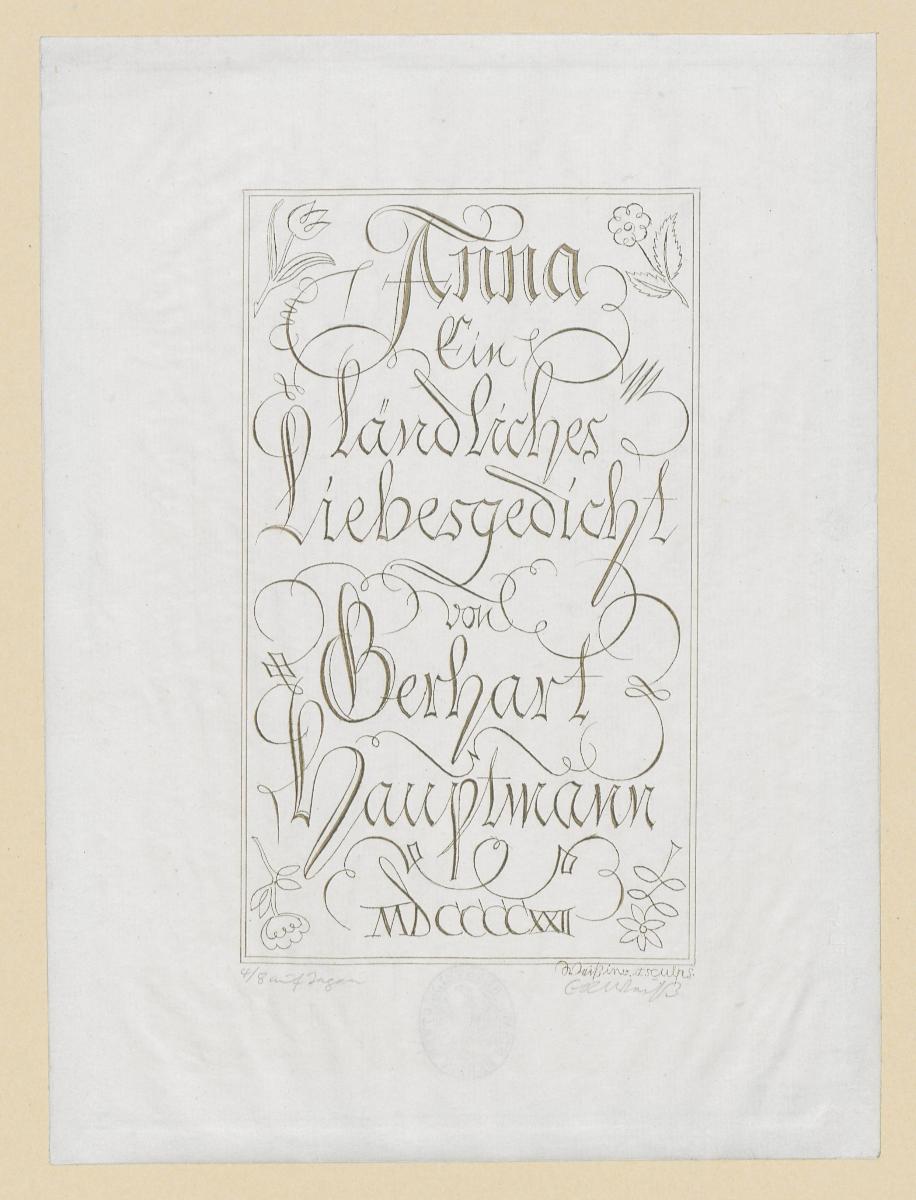 Anna
Ein
ländliches
Liebesgedicht
von
Gerhart
Hauptmann
MDCCCCXXII
4/8 auf Japan
Weiß inv. et sculps.
E R Weiß